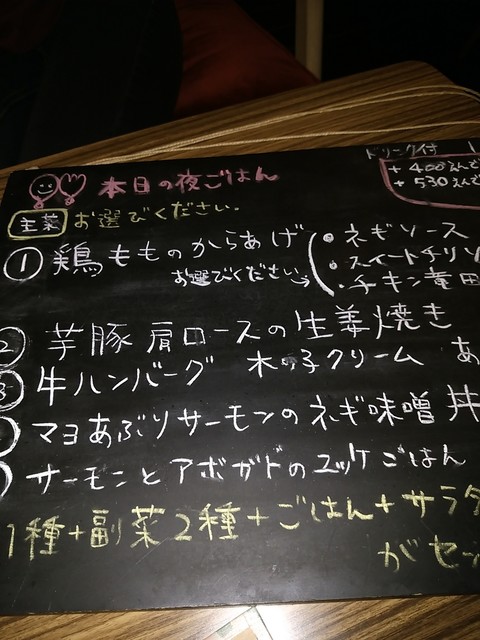 ドリンク付
+ 400えんで
+ 530えんで
本日の夜ごはん
主菜 お選びください.
① 鶏もものからあげ
お選びください→
・ネギソース
・スイートチリソ
・チキン竜田
② 芋豚 肩ロースの生姜焼き
③ 牛ハンバーグ 木の子クリーム あ
マヨあぶりサーモンのネギ味噌丼
サーモンとアボガドのユッケごはん
1種+副菜2種+ごはん+サラダ
がセッ